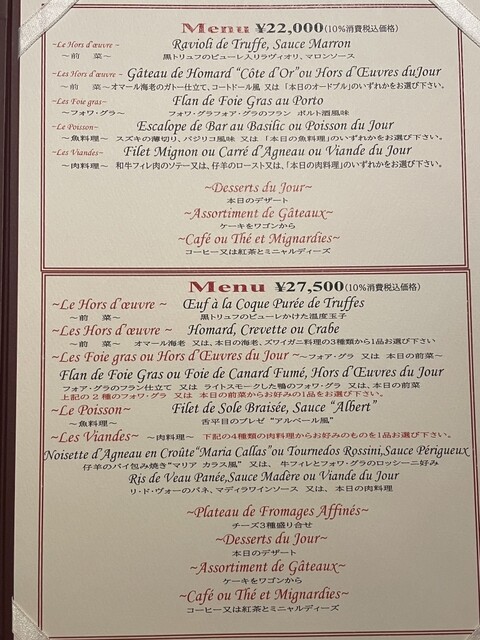 Menu ¥22,000(10%消費税込価格)
~Le Hors d'œuvre~ Ravioli de Truffe, Sauce Marron
～前 菜～ 黒トリュフのピューレ入りラヴィオリ、マロンソース
~Les Hors d'œuvre~ Gâteau de Homard "Côte d'Or" ou Hors d'Œuvres du Jour
～前 菜～ オマール海老のガトー仕立て、コートドール風 又は「本日のオードブル」のいずれかをお選び下さい。
~Les Foie gras~ Flan de Foie Gras au Porto
～フォワ・グラ～ フォワ・グラフォア・グラのフラン ポルト酒風味
~Le Poisson~ Escalope de Bar au Basilic ou Poisson du Jour
～魚料理～ スズキの薄切り、バジリコ風味 又は「本日の魚料理」のいずれかをお選び下さい。
~Les Viandes~ Filet Mignon ou Carré d'Agneau ou Viande du Jour
～肉料理～ 和牛フィレ肉のソテー又は、仔羊のロースト又は、「本日の肉料理」のいずれかをお選び下さい。
~Desserts du Jour~
本日のデザート
~Assortiment de Gâteaux~
ケーキをワゴンから
~Café ou Thé et Mignardies~
コーヒー又は紅茶とミニャルディーズ
Menu ¥27,500(10%消費税込価格)
~Le Hors d'œuvre ~ Œuf à la Coque Purée de Truffes
～前 菜～ 黒トリュフのピューレかけた温度玉子
~Les Hors d'œuvre ~ Homard, Crevette ou Crabe
～前 菜～ オマール海老 又は、本日の海老、ズワイガニ料理の3種類から1品お選び下さい
~Les Foie gras ou Hors d'Œuvres du Jour ~～フォワ・グラ 又は 本日の前菜～
Flan de Foie Gras ou Foie de Canard Fumé, Hors d'Œuvres du Jour
フォア・グラのフラン仕立て 又は ライトスモークした鴨のフォワ・グラ 又は、本日の前菜
上記の 2 種のフォワ・グラ 又は 本日の前菜からお好みの1品をお選び下さい。
~Le Poisson~ Filet de Sole Braisée, Sauce "Albert"
～魚料理～ 舌平目のブレゼ "アルベール風"
~Les Viandes~ ～肉料理～ 下記の4種類の肉料理からお好みのものを1品お選び下さい。
Noisette d'Agneau en Croûte"Maria Callas"ou Tournedos Rossini,Sauce Périgueux
仔羊のパイ包み焼き"マリア カラス風" 又は、 牛フィレとフォワ・グラのロッシーニ好み
Ris de Veau Panée,Sauce Madère ou Viande du Jour
リ・ド・ヴォーのパネ、マディラワインソース 又は、本日の肉料理
~Plateau de Fromages Affinés~
チーズ3種盛り合せ
~Desserts du Jour~
本日のデザート
~Assortiment de Gâteaux~
ケーキをワゴンから
~Café ou Thé et Mignardies~
コーヒー又は紅茶とミニャルディーズ